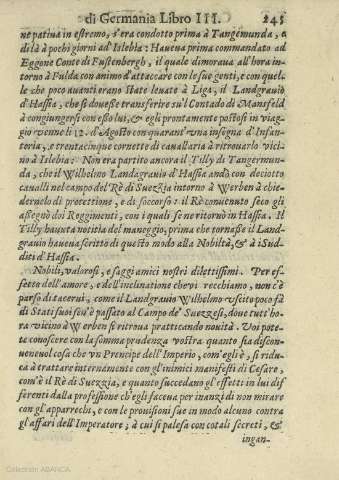 di Germania Libro III. 245
ne patina in estremo, s'era condotto prima à Tangemunda, e
di là à pochi giorni ad Islebia: Haueua prima commandato ad
Eggone Conte di Fustenbergh, il quale dimoraua all'hora in-
torno à Fulda con animo d'attaccare con le sue genti, e con quel-
le che poco auanti erano State leuate à Liga, il Landgrauio
d'Hassia, che si douesse transferire su'l Contado di Mansfeld
à congiungersi con esso lui, & egli prontamente postosi in viag-
gio venne li 12. d'Agosto con quarant'vna insegna d'Infan-
toria, e trentacinque cornette di cauallaria à ritrouarlo vici-
no à Islebia: Non era partito ancora il Tilly di Tangermun-
da, che il Wilhelmo Landagrauio d'Hassia andò con deciotto
caualli nel campo del Rè di Suezzia intorno à Werben à chie-
dernelo di protettione, e di soccorso: il Rè conuenuto seco gli
assegnò doi Reggimenti, con i quali se ne ritornò in Hassia. Il
Tilly hauuta notitia del maneggio, prima che tornasse il Land-
grauio haueua scritto di questo modo alla Nobiltà, & à i Sud-
diti d'Hassia.
Nobili, valorosi, e saggi amici nostri dilettissimi. Per ef-
fetto dell'amore, e dell'inclinatione che vi recchiamo, non c'è
parso di tacerui, come il Landgrauio Wilhelmo vscito poco fà
di Stati suoi sen'è passato al Campo de' Suezzesi, doue tutt'ho-
ra vicino à Werben si ritroua pratticando nouità. Voi pote-
te conoscere con la somma prudenza vostra quanto sia discon-
ueneuol cosa che vn Prencipe dell'Imperio, com'egli è, si ridu-
ca à trattare internamente con gl'inimici manifesti di Cesare,
com'è il Rè di Suezzia, e quanto succedano gl'effetti in lui dif
ferenti dalla professione ch'egli faceua per inanzi di non mirare
con gl'apparrechi, e con le prouisioni sue in modo alcuno contra
gl'affari dell'Imperatore, à cui si palesa con cotali secreti, &
ingan-
Colección ABANCA